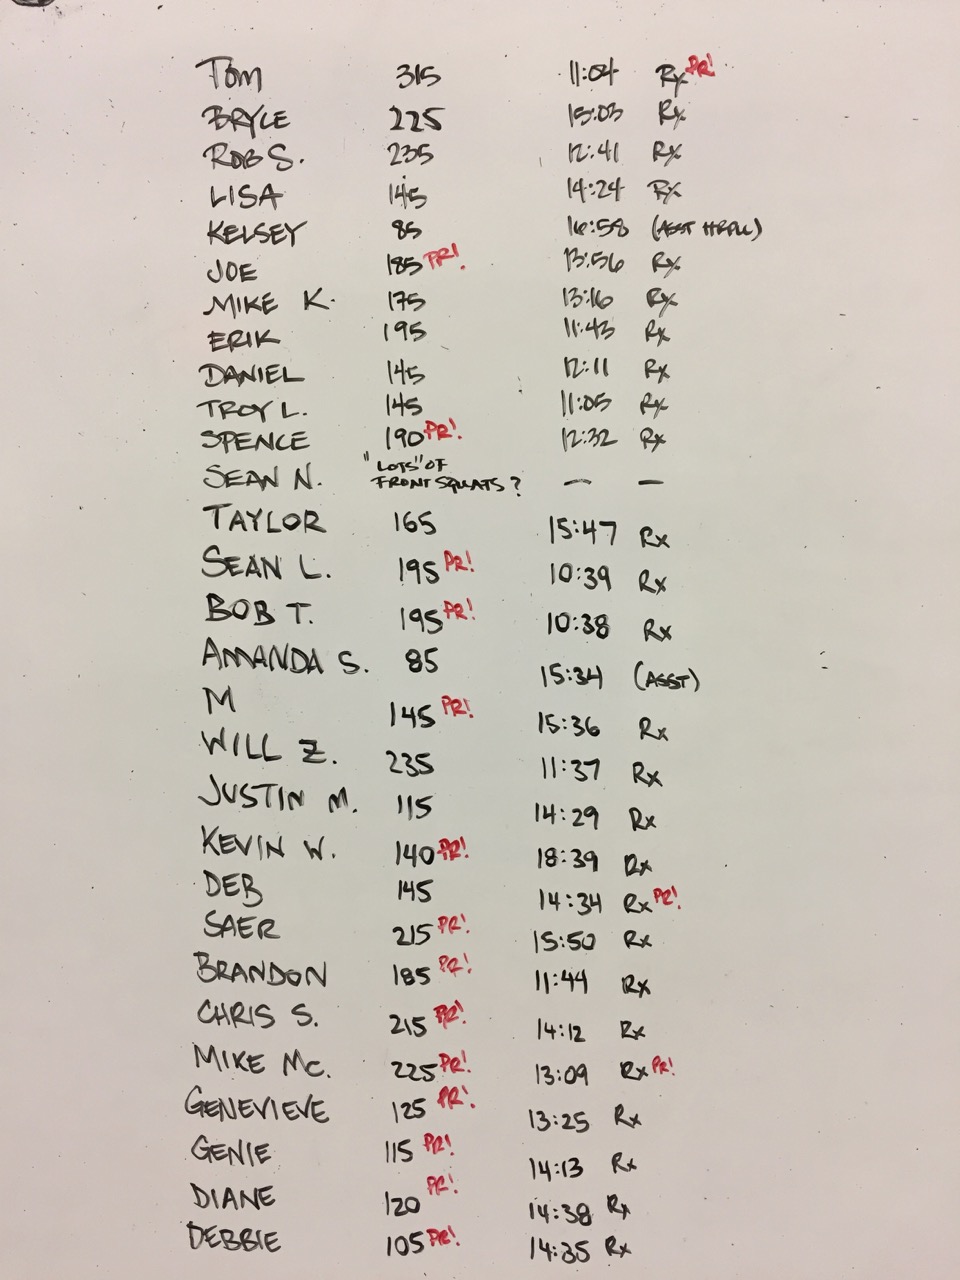 TOM 315 11:04 Rx PR!
BRYCE 225 15:03 Rx
ROB S. 235 12:41 Rx
LISA 145 14:24 Rx
KELSEY 85 16:58 (ASST
JOE 185 PR! 13:56 Rx
MIKE K. 175 13:16 Rx
ERIK 195 11:43 Rx
DANIEL 145 12:11 Rx
TROY L. 145 11:05 Rx
SPENCE 190 PR! 12:32 Rx
SEAN N. "LOTS" OF
FRONT SQUATS? — —
TAYLOR 165 15:47 Rx
SEAN L. 195 PR! 10:39 Rx
BOB T. 195 PR! 10:38 Rx
AMANDA S. 85 15:34 (ASST)
M 145 PR! 15:36 Rx
WILL Z. 235 11:37 Rx
JUSTIN M. 115 14:29 Rx
KEVIN W. 140 PR! 18:39 Rx
DEB 145 14:34 Rx PR!
SAER 215 PR! 15:50 Rx
BRANDON 185 PR! 11:44 Rx
CHRIS S. 215 PR! 14:12 Rx
MIKE MC. 225 PR! 13:09 Rx PR!
GENEVIEVE 125 PR! 13:25 Rx
GENIE 115 PR! 14:13 Rx
DIANE 120 PR! 14:38 Rx
DEBBIE 105 PR! 14:35 Rx